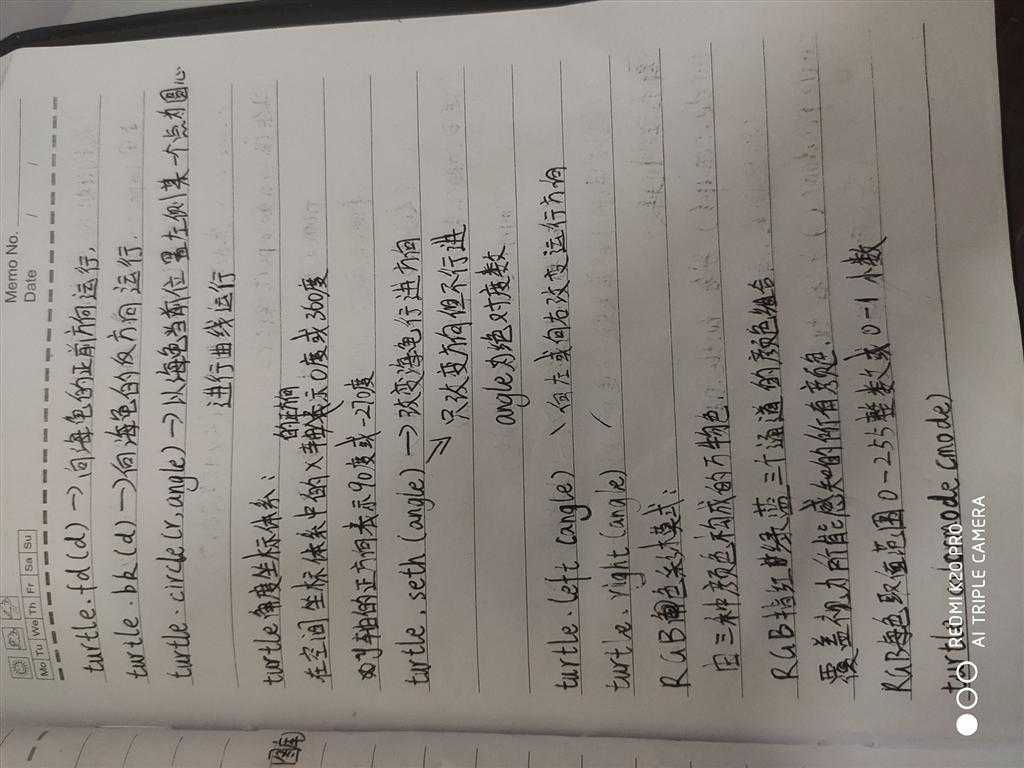 Memo No.
Date / /
Mo Tu We Th Fr Sa Su
turtle.fd(d) → 向海龟的正前方向运行,
turtle.bk(d) → 向海龟的反方向运行.
turtle.circle(r,angle) → 以海龟当前位置左侧某一个点为圆心
进行曲线运行
turtle角度坐标体系:
的正方向
在空间坐标体系中的x轴表示0度或360度
以y轴的正方向表示90度或-270度
turtle.seth(angle) → 改变海龟行进方向
→ 只改变方向但不行进
angle为绝对度数
turtle.left(angle) \ 向左或向右改变运行方向
turtle.right(angle) /
RGB色彩模式:
由三种颜色构成的万物色.
RGB指红绿蓝三个通道的颜色组合
覆盖视力所能感知的所有颜色.
RGB每色取值范围0-255整数或0-1小数
turtle.colormode(mode)
REDMI K20 PRO
AI TRIPLE CAMERA